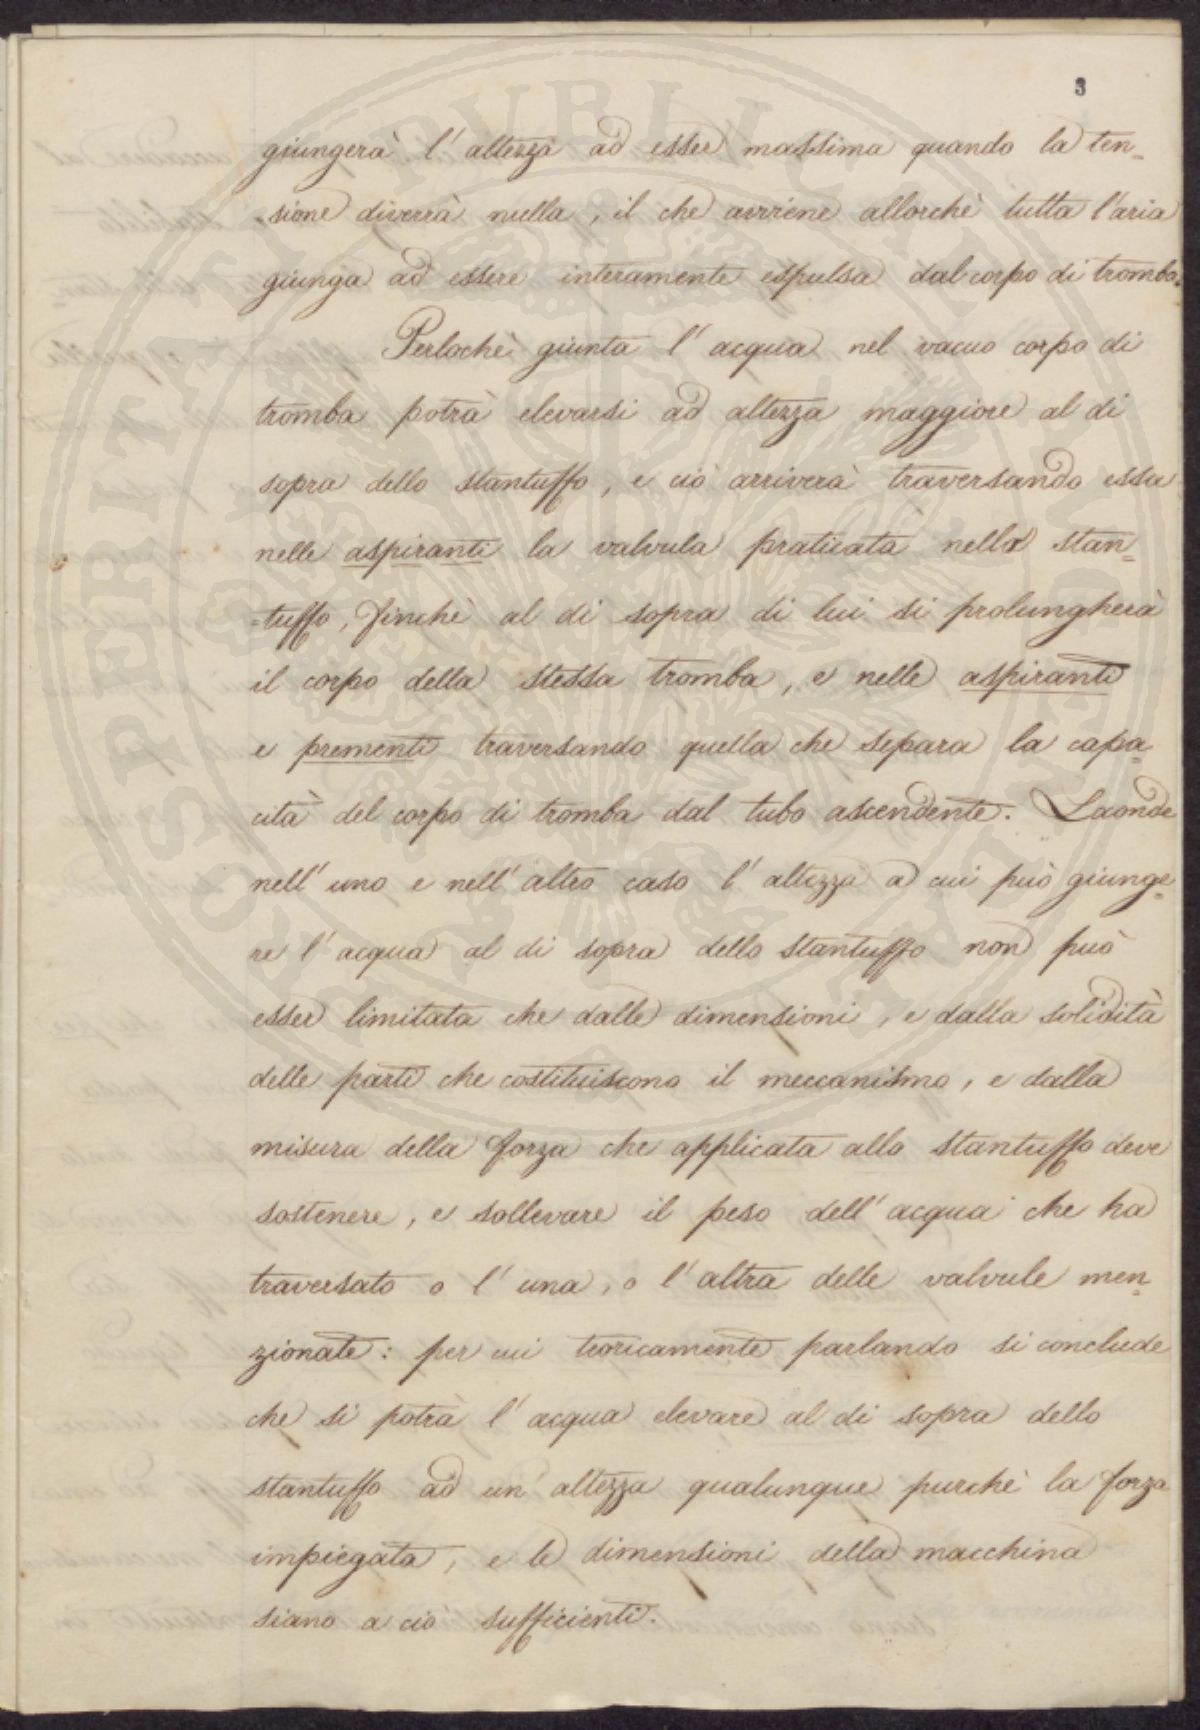 3
giungerà l'altezza ad esser massima quando la ten=
=sione diverrà nulla, il che avviene allorchè tutta l'aria
giunga ad essere interamente espulsa dal corpo di tromba.
Perlochè giunta l'acqua nel vacuo corpo di
tromba potrà elevarsi ad altezza maggiore al di
sopra dello stantuffo, e ciò arriverà traversando essa
nelle aspiranti la valvula praticata nello stan=
=tuffo, finchè al di sopra di lui si prolungherà
il corpo della stessa tromba, e nelle aspiranti
e prementi traversando quella che separa la capa=
cità del corpo di tromba dal tubo ascendente. Laonde
nell'uno e nell'altro caso l'altezza a cui può giunge=
re l'acqua al di sopra dello stantuffo non può
esser limitata che dalle dimensioni, e dalla solidità
delle parti che costituiscono il meccanismo, e dalla
misura della forza che applicata allo stantuffo deve
sostenere, e sollevare il peso dell'acqua che ha
traversato o l'una, o l'altra delle valvule men=
zionate: per cui teoricamente parlando si conclude
che si potrà l'acqua elevare al di sopra dello
stantuffo ad un'altezza qualunque purchè la forza
impiegata, e le dimensioni della macchina
siano a ciò sufficienti.